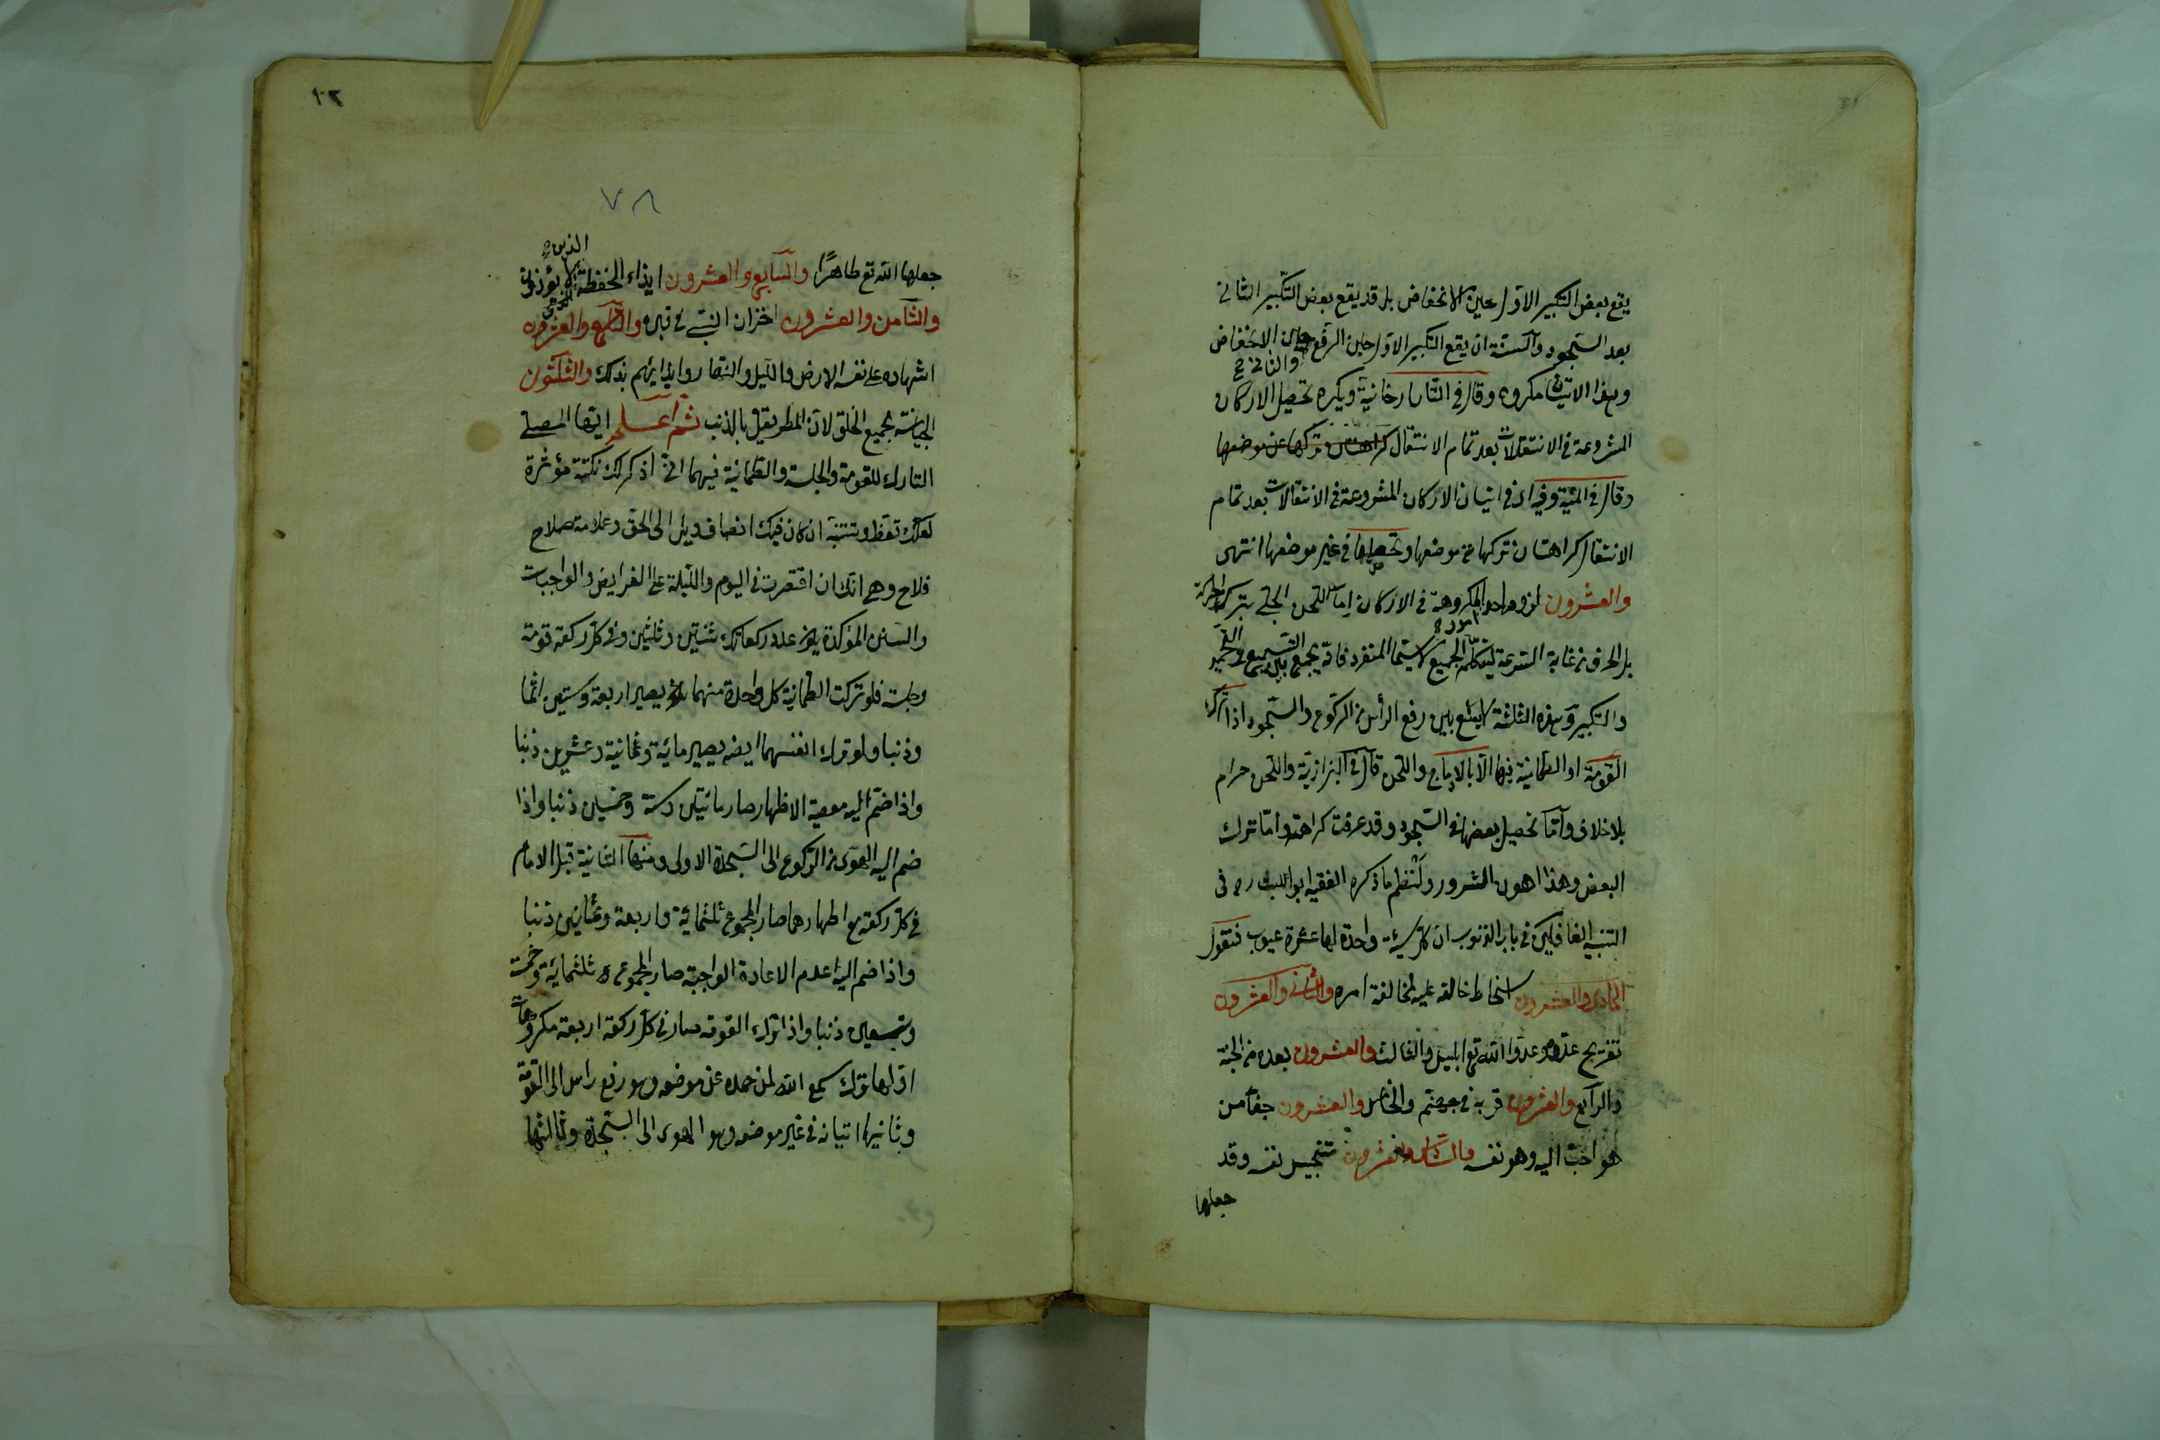 يقع بعض التكبير الاول حين الانخفاض بل قد يقع بعض التكبير الثاني
بعد السجود والسنة ان يقع التكبير الاول حين الرفع حين الانخفاض
والثاني
وهذا الاتيان مكروه وقال في التاتارخانية ويكره تحصيل الاركان
المشروعة في الانتقالات بعد تمام الانتقال كراهتان تركها عن موضعها
وقال في المنية وفيه اى في اتيان الاركان المشروعة في الانتقالات بعد تمام
الانتقال كراهتان تركها عن موضعها وتحصيلها في غير موضعها انتهى
والعشرون لزوم احد المكروهة في الاركان اما اللحن الجلي بترك الحركة
الامور
بل الحرف من غاية السرعة ليتكلم الجميع لاسيما المنفرد فانه يجمع بين التسميع والتحميد
والتكبير وهذه الثلثة لا يسع بين رفع الرأس من الركوع والسجود اذا ترك
القومة او الطمانية فيها الا بالادماج واللحن قال في البزازية واللحن حرام
بلا خلاف واما تحصيل بعضها في السجود وقد عرفت كراهته واما ترك
البعض وهذا اهون الشرور ولننظم ما ذكره الفقيه ابو الليث ره في
التنبيه الغافلين في باب الذنوب ان كل سيئة واحدة لها عشرة عيوب فنقول
الحادى والعشرون اسخاط خالقه عليه لمخالفة امره والثاني والعشرون
تفريح عدوه وعدو الله تع ابليس والثالث والعشرون بعده من الجنة
والرابع والعشرون قربه في جهنم والخامس والعشرون جفا من
هو احب اليه وهو نفسه والسادس والعشرون تنجيس نفسه وقد
جعلها
١٠٢
٧٨
الذين
جعلها الله تع طاهرا والسابع والعشرون ايذاء الحفظة لا يؤذونه
والثامن والعشرون احزان النبي في قبره والتاسع والعشرون
اشهاده على نفسه الارض والليل والنهار وايذائهم بذلك والثلثون
الخيانة بجميع الخلق لان المطر يقل بالذنب ثم اعلم ايها المصلي
التارك للقومة والجلسة والطمانية فيهما اني اذكر لك نكتة مؤثرة
لعلك تتعظ وتتنبه ان كان فيك انصاف وميل الى الحق وعلامة صلاح
فلاح وهي انك ان اقتصرت في اليوم والليلة على الفرايض والواجبات
والسنن المؤكدة يكون عدد ركعاتك ثنتين وثلثين وفي كل ركعة قومة
وجلسة فلو تركت الطمانية كل واحدة منهما يصير اربعة وستين اثما
وذنبا ولو ترك انفسهما ايضه يصير مائة وثمانية وعشرين ذنبا
واذا ضم اليه معصية الاظهار صار مائتين وستة وخمسين ذنبا واذا
ضم اليه الهوى من الركوع الى السجدة الاولى ومنها الثانية قبل الامام
في كل ركعة مع اظهارهما صار المجموع ثلثمائة واربعة وثمانين ذنبا
واذا ضم اليه عدم الاعادة الواجبة صار المجموع ثلثمائة وخمسة
وتسعين ذنبا واذا ترك القومة صار في كل ركعة اربعة مكروهات
اولها ترك سمع الله لمن حمده عن موضعه وهو رفع راس الى القومة
وثانيها اتيانه في غير موضعه وهو الهوى الى السجدة وثالثها